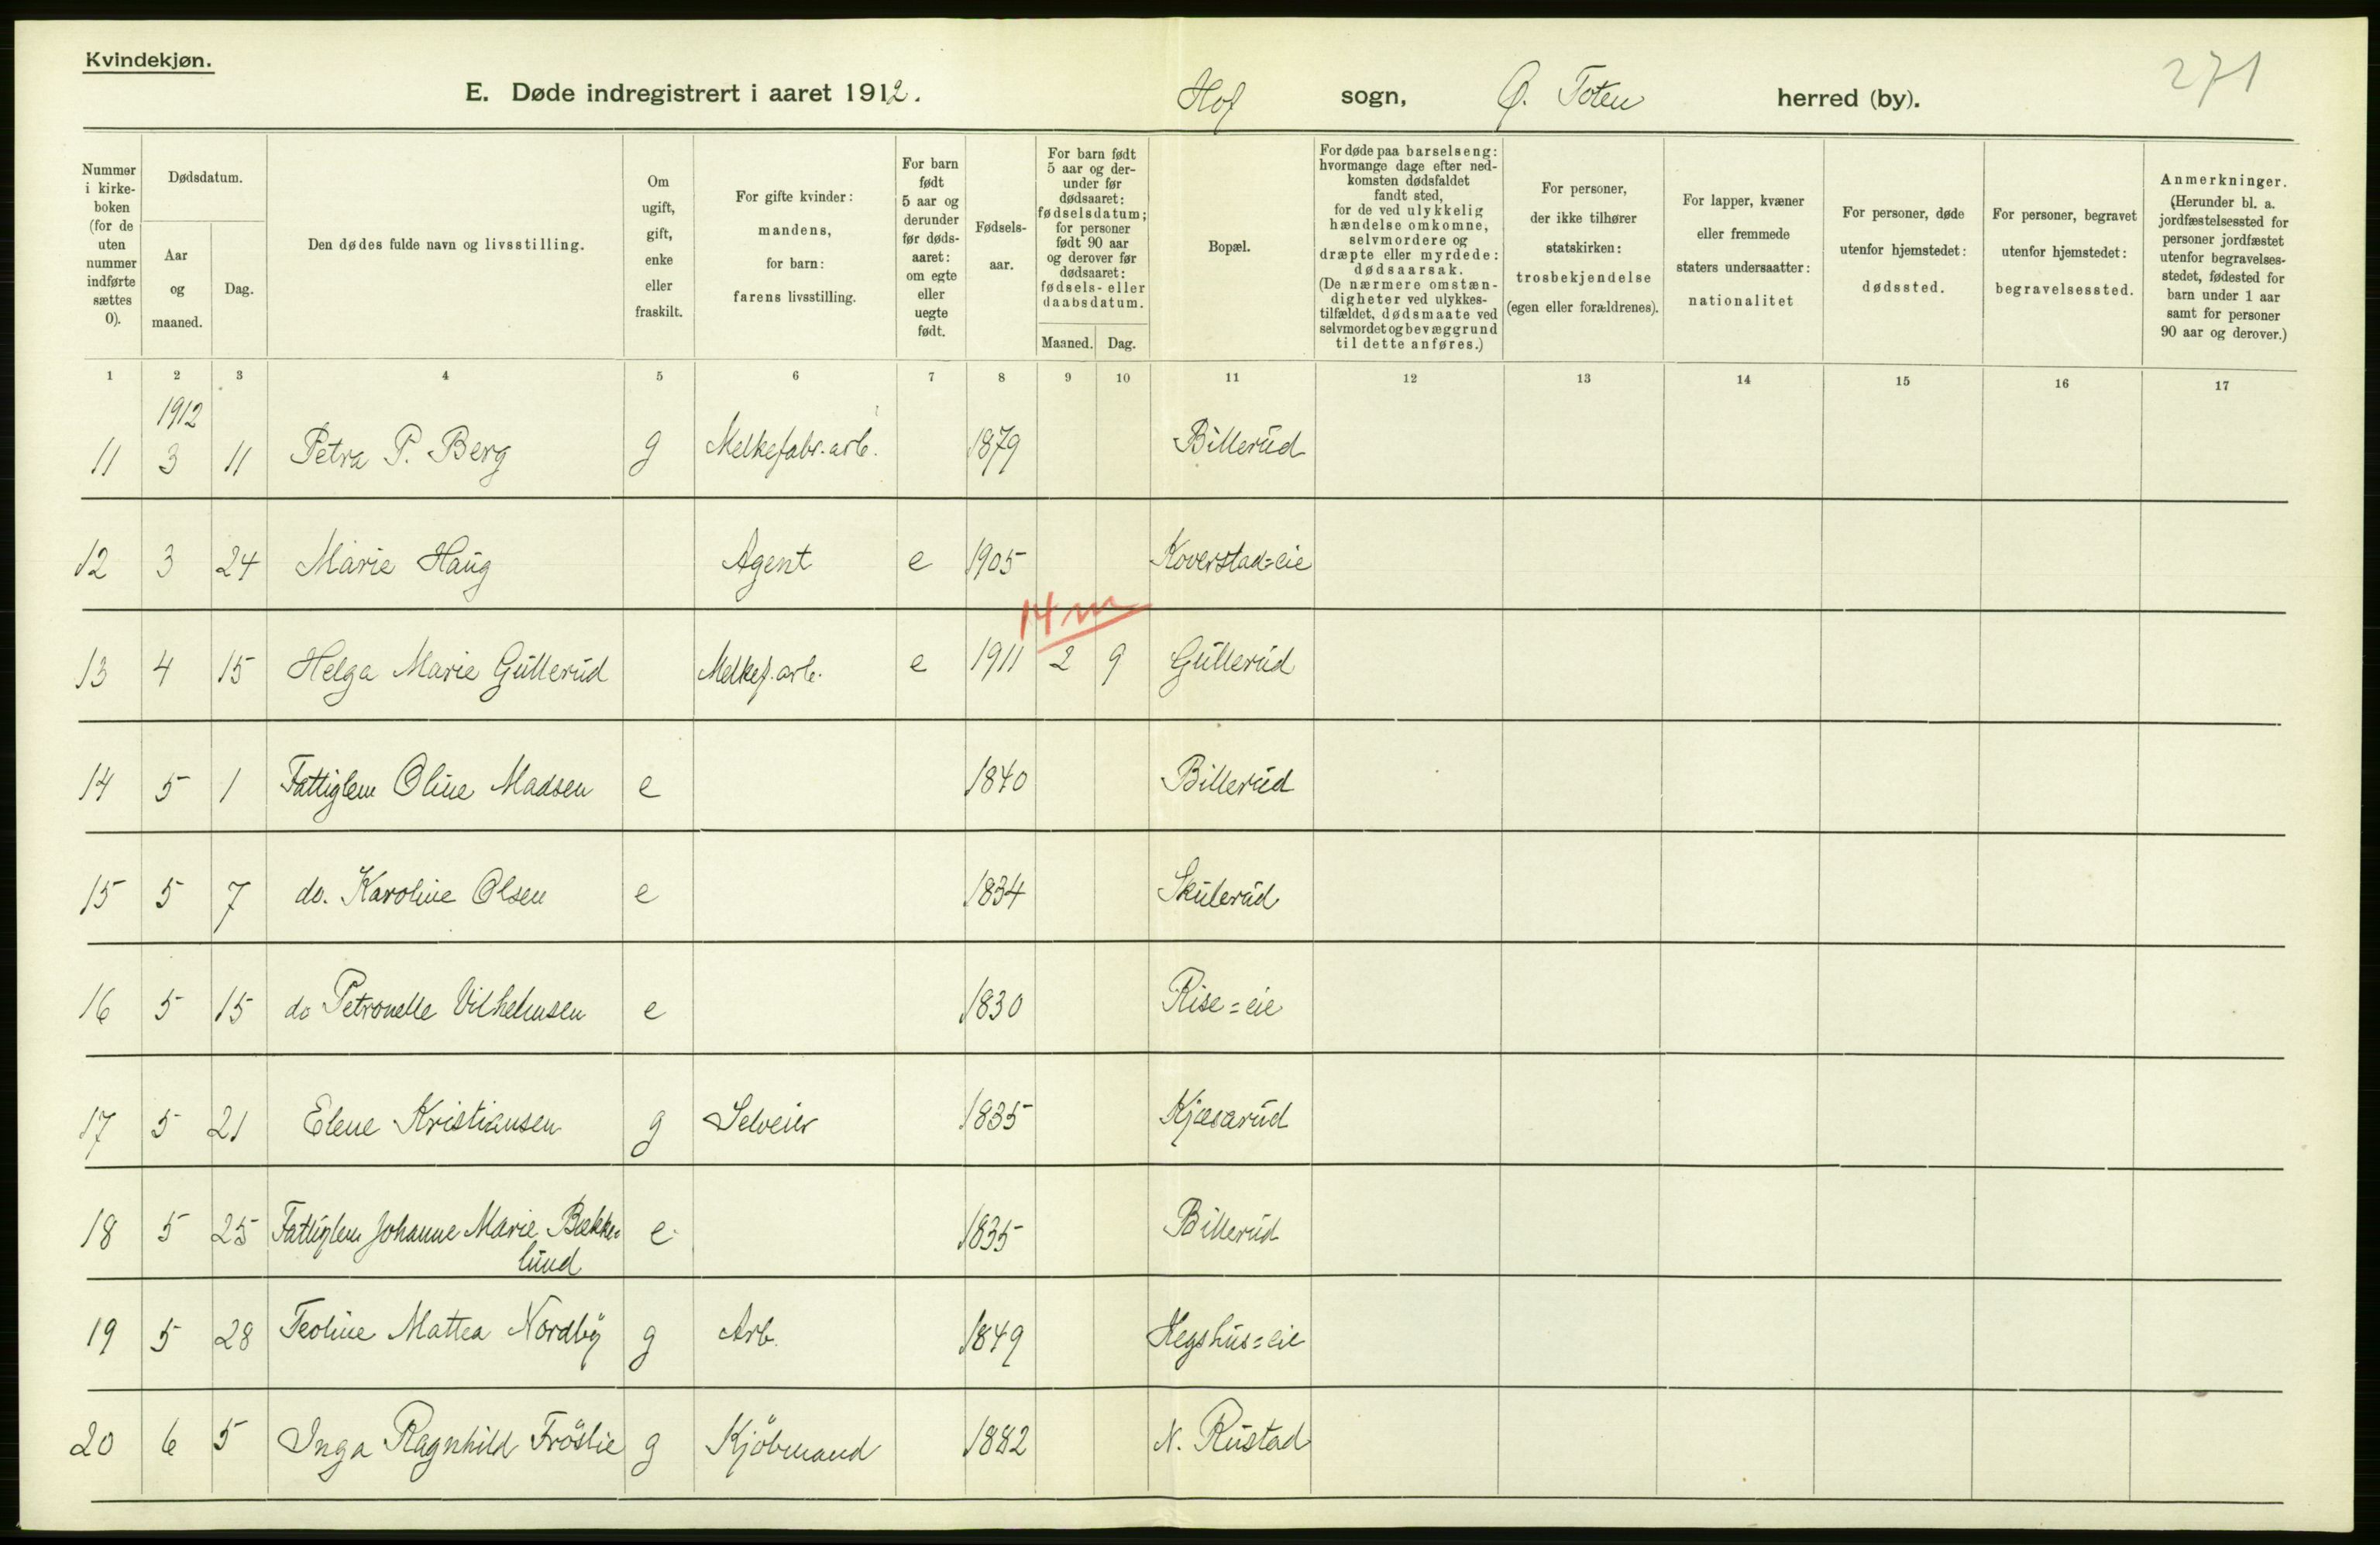 Kvindekjøn.
271
E. Døde indregistrert i aaret 1912. Hof sogn, Ø. Toten herred (by).
Nummer i kirke-boken (for de uten nummer indførte sættes 0).
Dødsdatum.
Aar og maaned.
Dag.
Den dødes fulde navn og livsstilling.
Om ugift, gift, enke eller fraskilt.
For gifte kvinder: mandens, for barn: farens livsstilling.
For barn født 5 aar og derunder før døds-aaret: om egte eller uegte født.
Fødsels-aar.
For barn født 5 aar og der-under før dødsaaret: fødselsdatum; for personer født 90 aar og derover før dødsaaret: fødsels- eller daabsdatum.
Maaned. Dag.
Bopæl.
For døde paa barselseng: hvormange dage efter ned-komsten dødsfaldet fandt sted, for de ved ulykkelig hændelse omkomne, selvmordere og dræpte eller myrdede: dødsaarsak. (De nærmere omstæn-digheter ved ulykkes-tilfældet, dødsmaate ved selvmordet og bevæggrund til dette anføres.)
For personer, der ikke tilhører statskirken: trosbekjendelse (egen eller forældrenes).
For lapper, kvæner eller fremmede staters undersaatter: nationalitet
For personer, døde utenfor hjemstedet: dødssted.
For personer, begravet utenfor hjemstedet: begravelsessted.
Anmerkninger. (Herunder bl. a. jordfæstelsessted for personer jordfæstet utenfor begravelses-stedet, fødested for barn under 1 aar samt for personer 90 aar og derover.)
1 2 3 4 5 6 7 8 9 10 11 12 13 14 15 16 17
1912
11 3 11 Petra P. Berg g Melkefabr. arb. 1879 Billerud
12 3 24 Marie Haug Agent e 1905 Koverstad=eie
14 m
13 4 15 Helga Marie Gullerud Melkef. arb. e 1911 2 9 Gullerud
14 5 1 Fattiglem Oline Madsen e 1840 Billerud
15 5 7 do. Karoline Olsen e 1834 Skulerud
16 5 15 do Petronelle Vilhelmsen e 1830 Rise=eie
17 5 21 Elene Kristiansen g Selveier 1835 Kjæsarud
18 5 25 Fattiglem Johanne Marie Bække= e 1835 Billerud
lund
19 5 28 Teoline Mattea Nordby g Arb. 1849 Hegshus=eie
20 6 5 Inga Ragnhild Fröslie g Kjöbmand 1882 N. Rustad